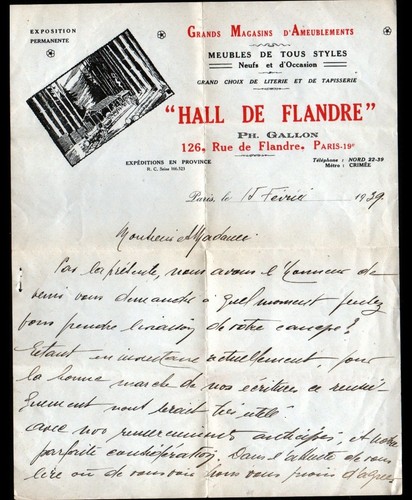 EXPOSITION
PERMANENTE
Grands Magasins d'Ameublements
MEUBLES DE TOUS STYLES
Neufs et d'Occasion
GRAND CHOIX DE LITERIE ET DE TAPISSERIE
"HALL DE FLANDRE"
Ph. GALLON
126, Rue de Flandre, PARIS-19e
EXPÉDITIONS EN PROVINCE
R. C. Seine 166.323
Téléphone : NORD 22-39
Métro : CRIMÉE
Paris, le 15 Février 1939
Monsieur et Madame
Par la présente, nous avons l'honneur de
venir vous demander à quel moment
vous prendre livraison de votre canapé?
Etant en inventaire actuellement, pour
la bonne marche de nos écritures ce
nous serait très utile
avec nos remerciements anticipés, et notre
parfaite considération. Dans l'attente de vous
lire ou de vous voir nous vous prions d'agréer